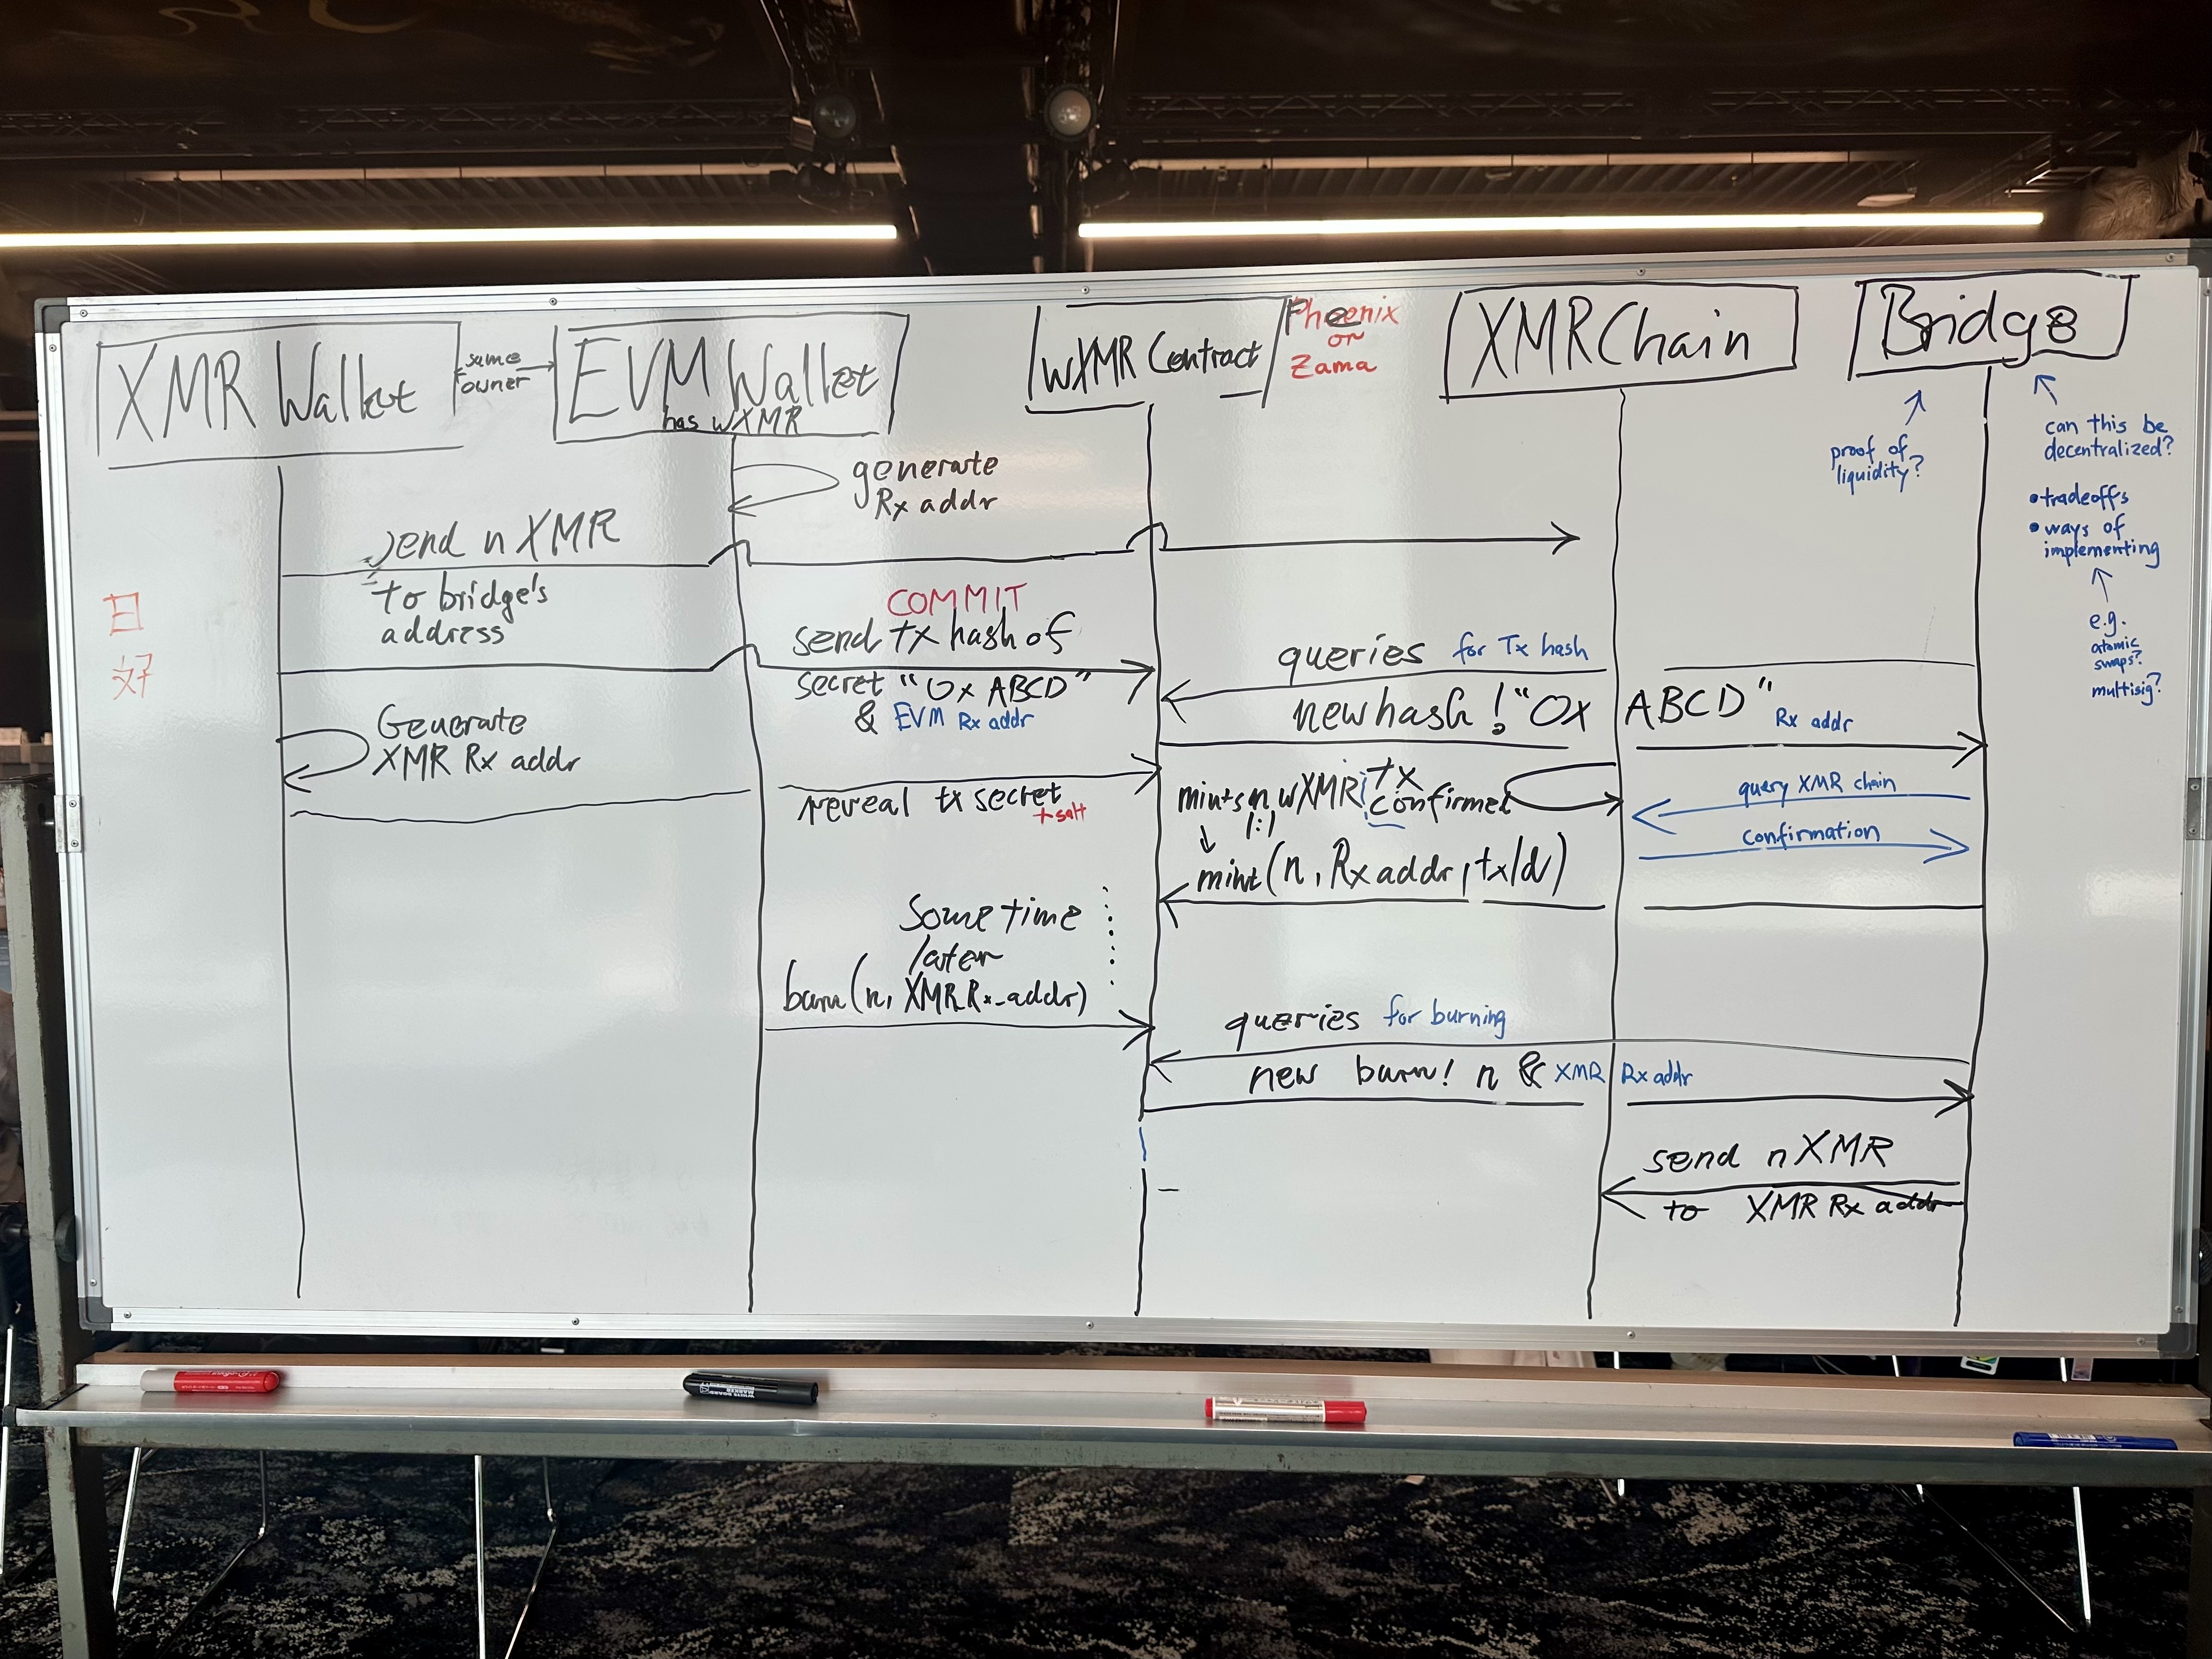 XMR Wallet
same
owner
EVM Wallet
has wXMR
wXMR Contract
Phoenix
or
Zama
XMRChain
Bridge
proof of
liquidity?
can this be
decentralized?
• tradeoffs
• ways of
implementing
e.g.
atomic
swaps?
multisig?
generate
Rx addr
send n XMR
to bridge's
address
COMMIT
send tx hash of
secret "0x ABCD"
& EVM Rx addr
queries for Tx hash
new hash! "0x ABCD" Rx addr
日
好
Generate
XMR Rx addr
reveal tx secret
+ salt
mints n wXMR
1:1
tx
confirmed
query XMR chain
confirmation
mint(n, Rx addr, txId)
Some time
later
burn(n, XMR Rx_addr)
queries for burning
new burn! n & XMR Rx addr
send n XMR
to XMR Rx addr